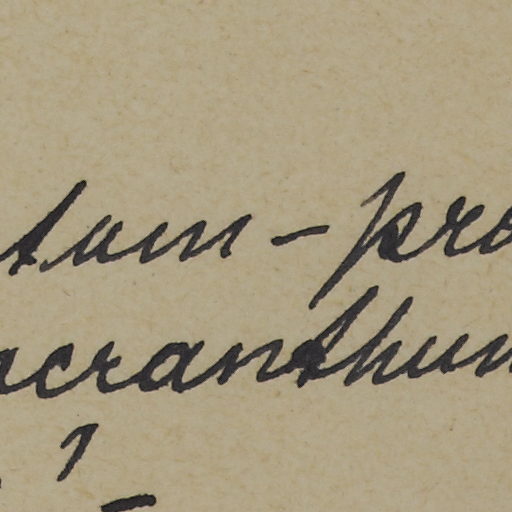 tum-pro
acranthum